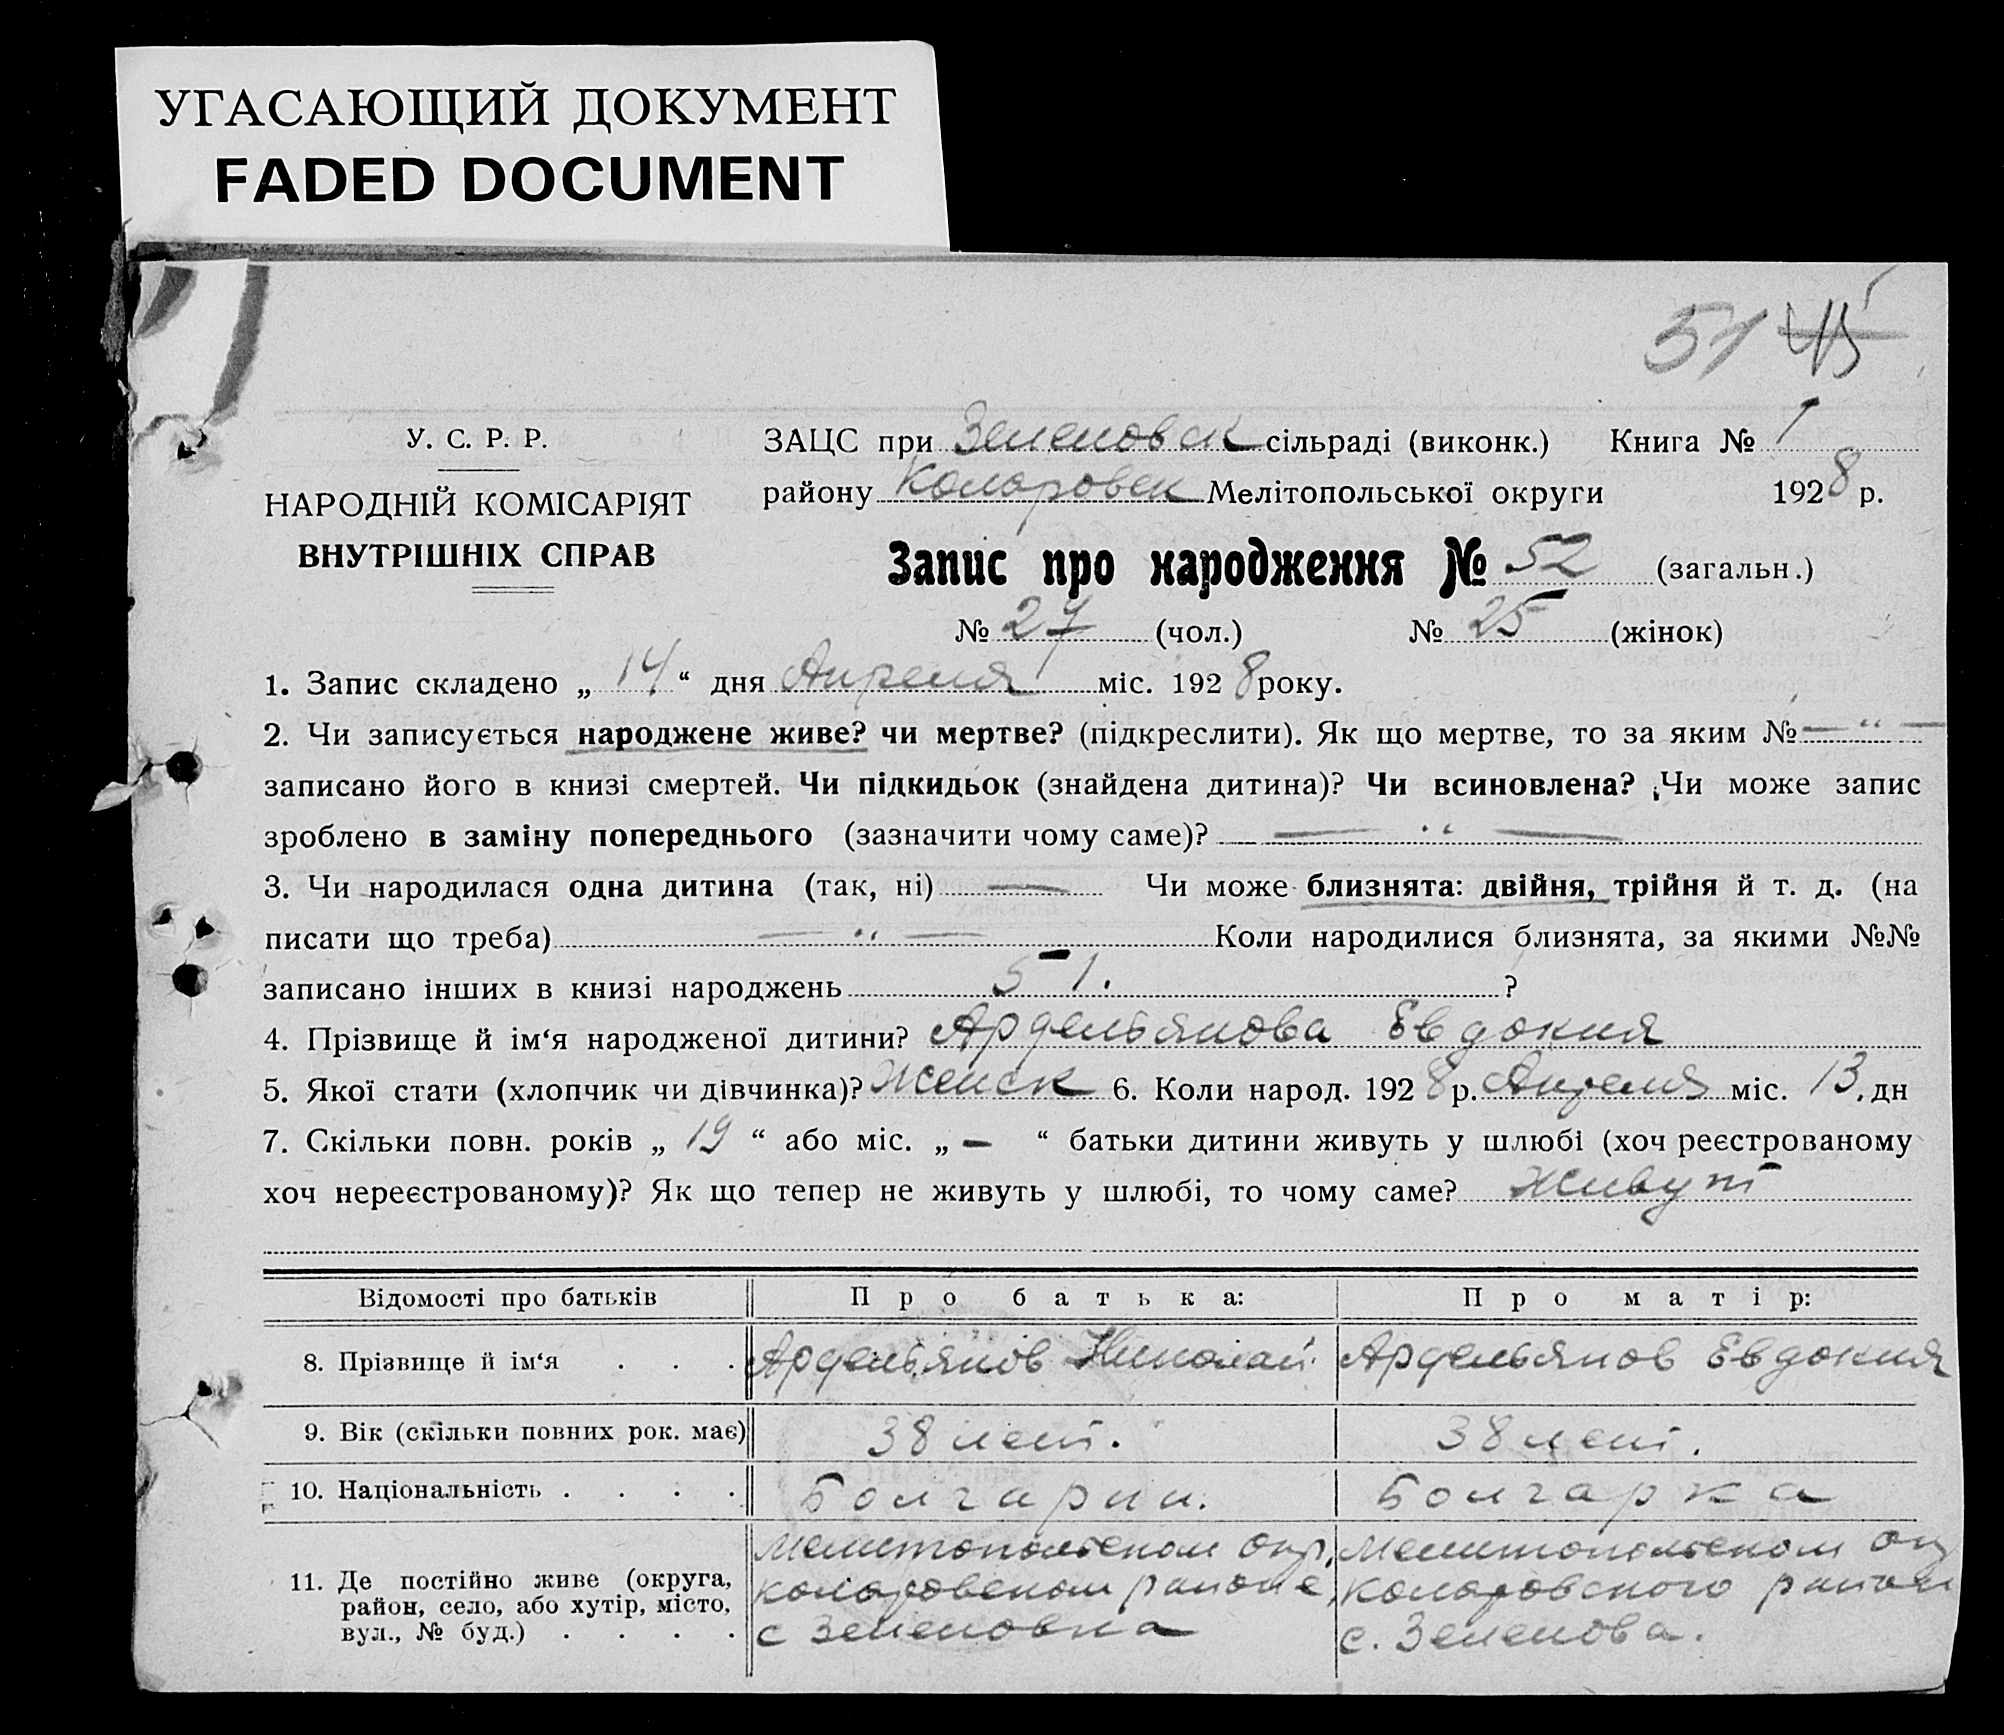 УГАСАЮЩИЙ ДОКУМЕНТ
FADED DOCUMENT
51 45
У. С. Р. Р.
НАРОДНІЙ КОМІСАРІЯТ
ВНУТРІШНІХ СПРАВ
ЗАЦС при Зеленовск сільраді (виконк.) Книга № 1
району Коларовск Мелітопольської округи 1928 р.
Запис про народження № 52 (загальн.)
№ 27 (чол.) № 25 (жінок)
1. Запис складено „ 14 “ дня Апреля міс. 1928 року.
2. Чи записується народжене живе? чи мертве? (підкреслити). Як що мертве, то за яким № — “ —
записано його в книзі смертей. Чи підкидьок (знайдена дитина)? Чи всиновлена? Чи може запис
зроблено в заміну попереднього (зазначити чому саме)? — “ —
3. Чи народилася одна дитина (так, ні) — Чи може близнята: двійня, трійня й т. д. (на
писати що треба) — “ — Коли народилися близнята, за якими №№
записано інших в книзі народжень 51. ?
4. Прізвище й ім‘я народженої дитини? Ардельянова Евдокия
5. Якої стати (хлопчик чи дівчинка)? Женск 6. Коли народ. 1928 р. Апреля міс. 13. дн
7. Скільки повн. років „ 19 “ або міс. „ — “ батьки дитини живуть у шлюбі (хоч реєстрованому
хоч нереєстрованому)? Як що тепер не живуть у шлюбі, то чому саме? Живут
Відомості про батьків Про батька: Про матір:
8. Прізвище й ім‘я . . . Ардельянов Николай. Ардельянов Евдокия
9. Вік (скільки повних рок. має) 38 лет. 38 лет.
10. Національність . . . . Болгарин. Болгарка
Мелитопольском окр. Мелитопольском ок
11. Де постійно живе (округа, Коларовском районе, Коларовского район
район, село, або хутір, місто,
вул., № буд.) . . . . с Зеленовка с. Зеленова.